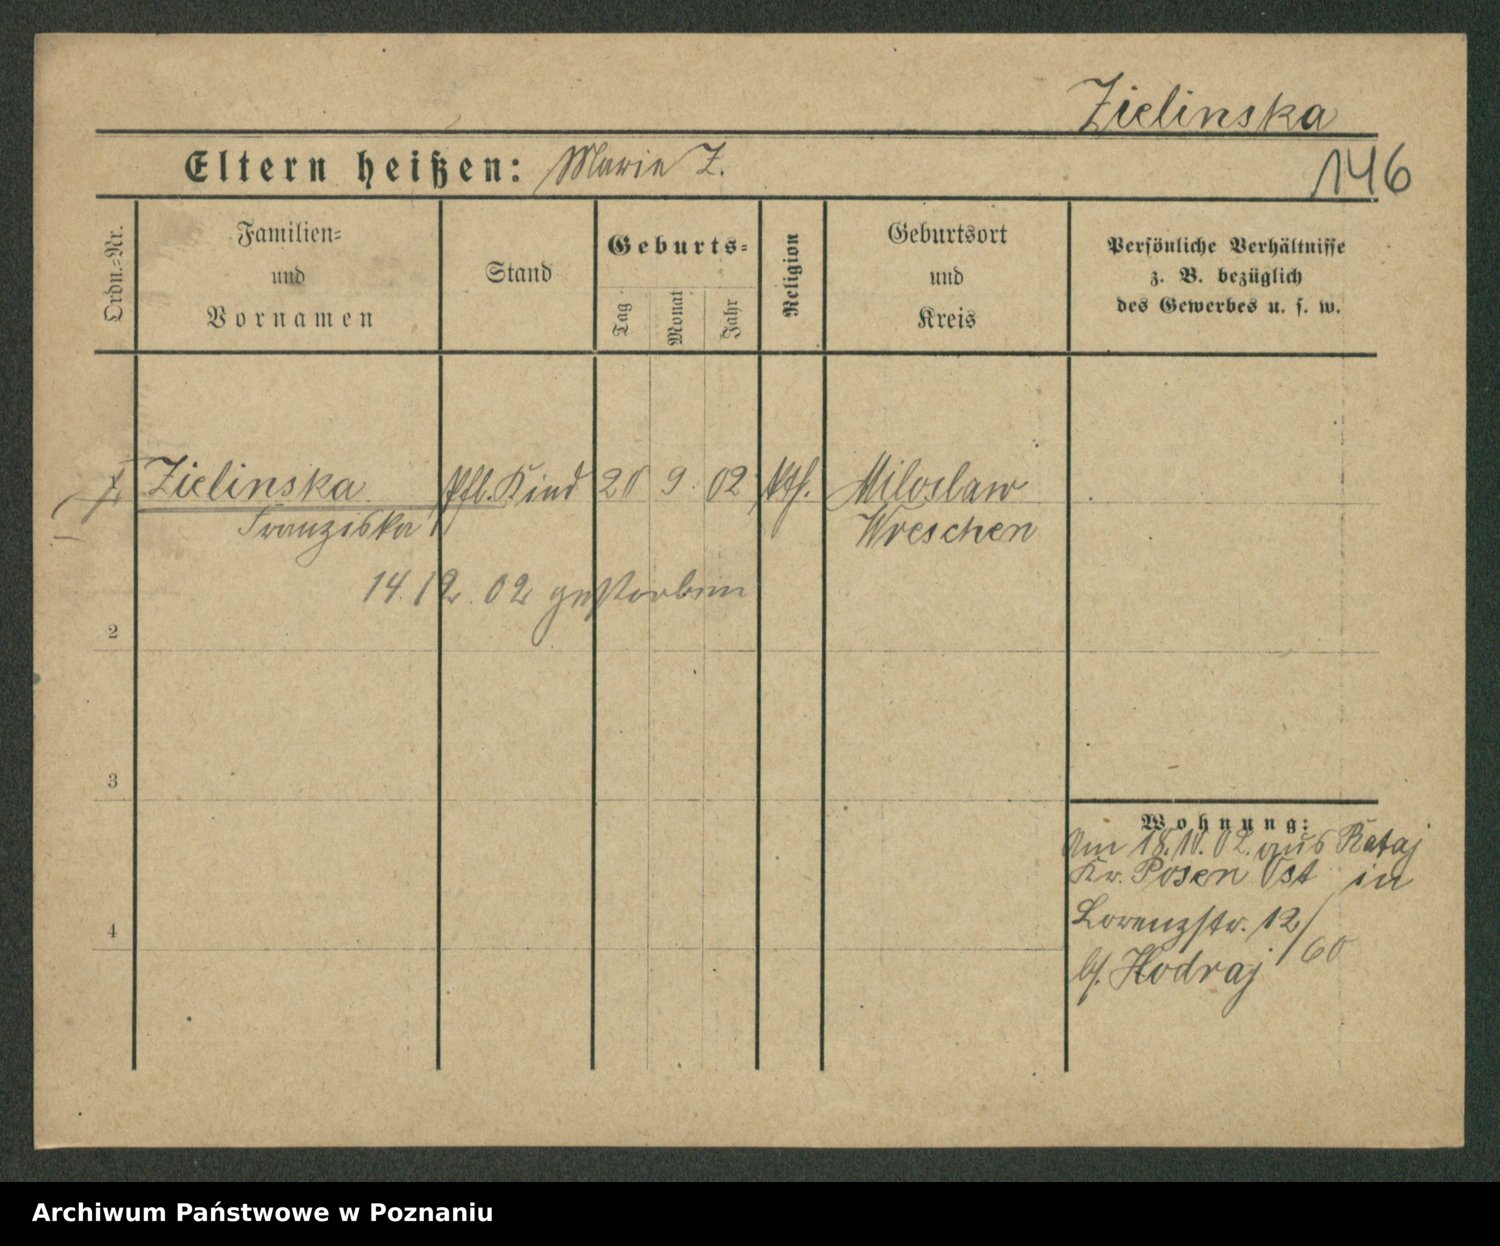 Zielinska
Eltern heißen: Marie Z.
146
Ordn.-Nr.
Familien-
und
Vornamen
Stand
Geburts-
Tag
Monat
Jahr
Religion
Geburtsort
und
Kreis
Persönliche Verhältnisse
z. B. bezüglich
des Gewerbes u. s. w.
Zielinska Pfl. Kind 20 9. 02 kth. Miloslaw
Franziska Wreschen
14. 12. 02 gestorben
2
3
4
Wohnung:
Am 18. 10. 02. aus Rataj
Kr. Posen Ost in
Lorenzstr. 12/
60
b/. Hodraj
Archiwum Państwowe w Poznaniu